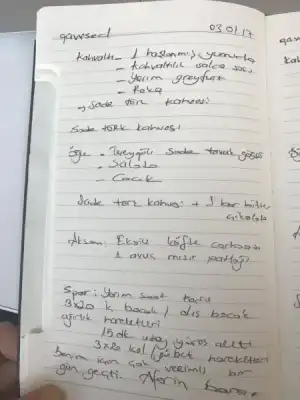 qavseed 03.01.17
Kahvaltı - 1 haşlanmış yumurta
- kahvaltılık salça
- yarım greyfurt
- Roka
Sade türk kahvesi
Sade türk kahvesi
Öğle - Sade tavuk göğsü
- Salata
- Cacık
Sade türk kahvesi + 1 kare bitter
çikolata
Akşam: Ekşili köfte çorbası
1 avuç mısır patlağı
Spor: Yarım saat
3x20 k. bacak / dış bacak
ağırlık hareketleri
15 dk
3x20 kol / hareketleri
Benim için çok verimli bir
gün geçti.